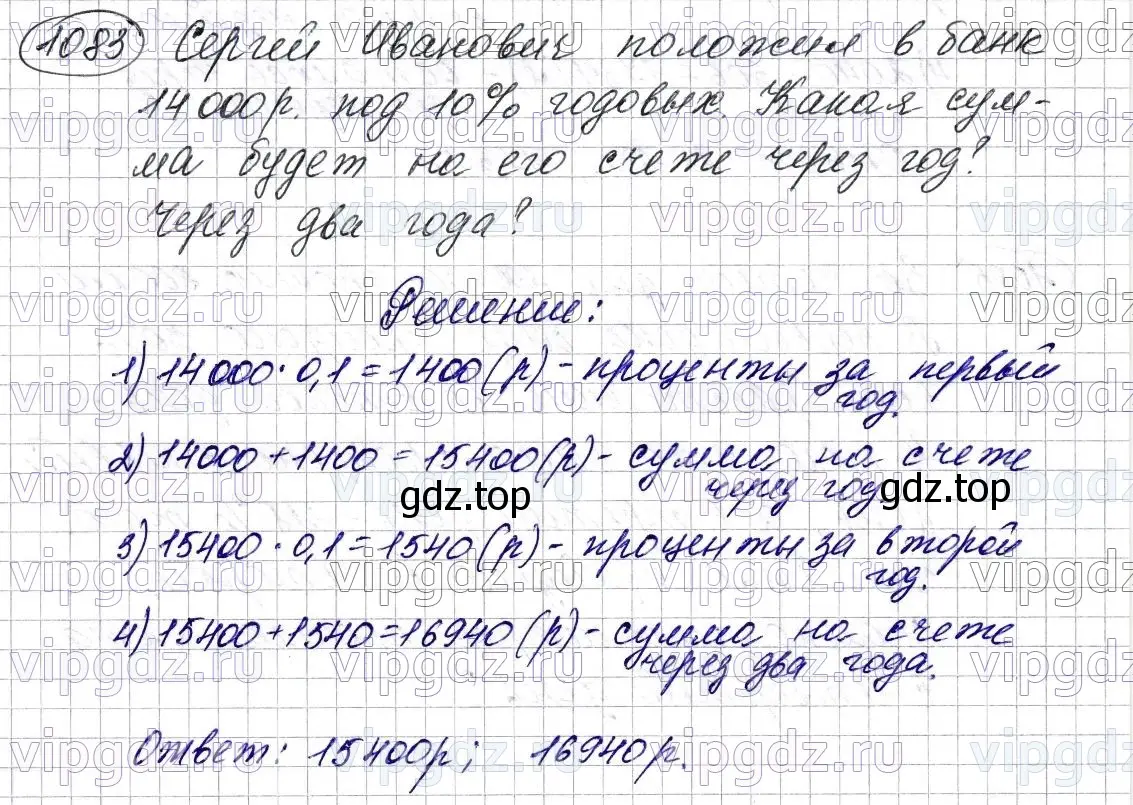 1083 Сергей Иванович положил в банк
14000р. под 10% годовых. Какая сум-
ма будет на его счете через год?
Через два года?
Решение:
1) 14000·0,1=1400(р)-проценты за первый
год.
2) 14000+1400=15400(р)-сумма на счете
через год
gdz.top gdz.top
3) 15400·0,1=1540(р)-проценты за второй
год.
4) 15400+1540=16940(р)-сумма на счете
через два года.
Ответ: 15400р; 16940р.
vipgdz.ru